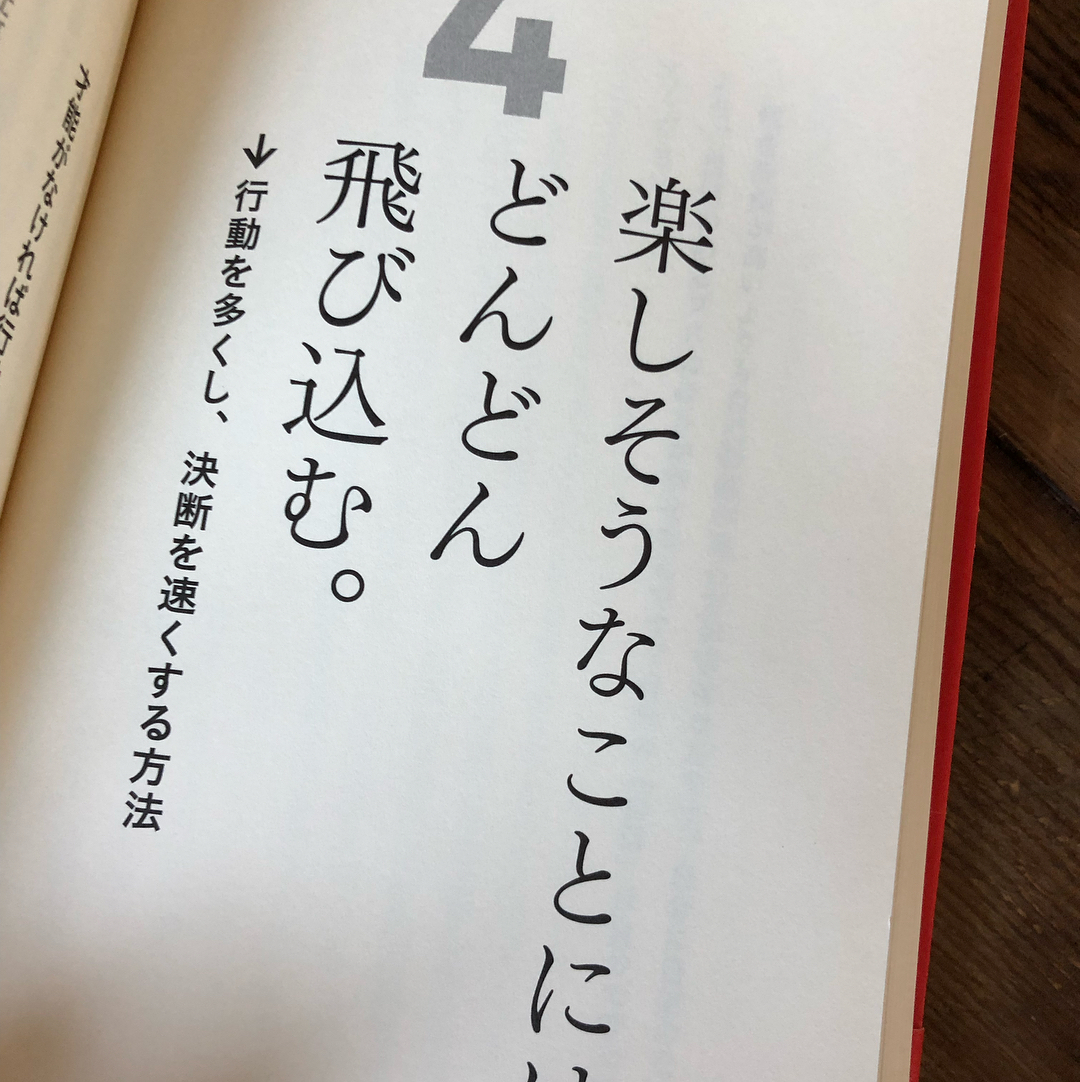 4
楽しそうなことには
どんどん
飛び込む。
↓行動を多くし、決断を速くする方法
才能がなければ行